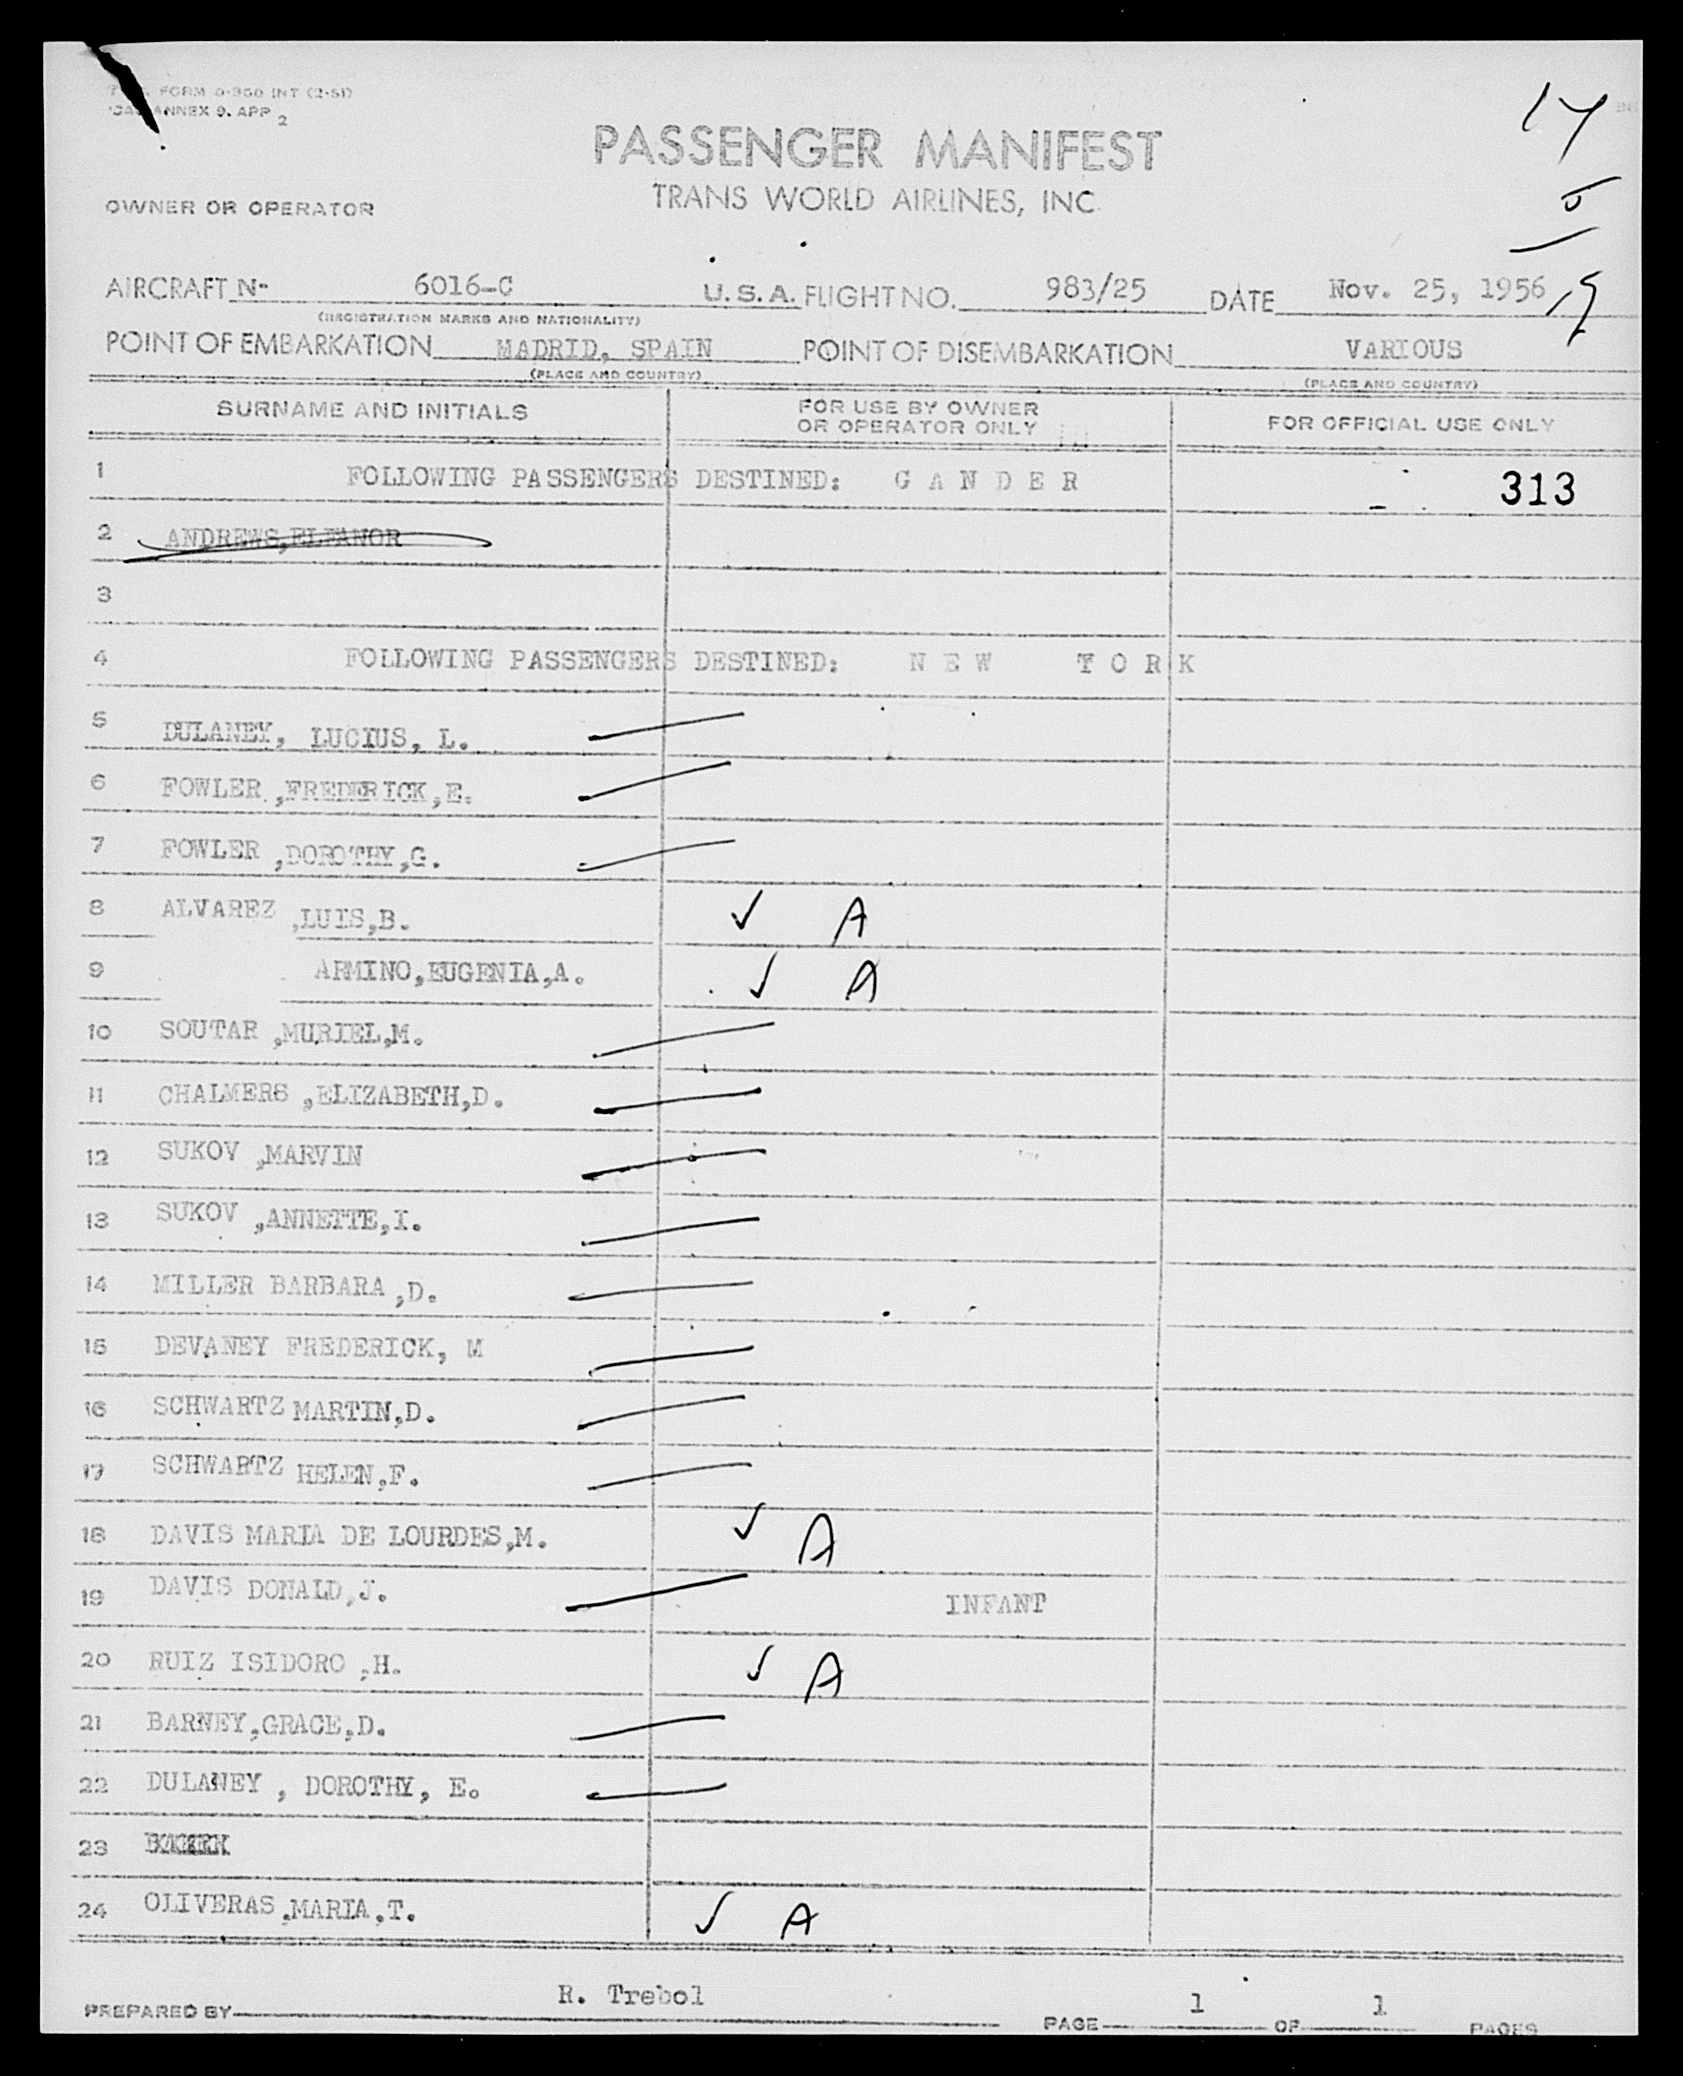 FORM 0-350 INT (2-51)
ANNEX 9. APP 2
17
PASSENGER MANIFEST
TRANS WORLD AIRLINES, INC.
5
OWNER OR OPERATOR
19
AIRCRAFT N- 6016-C U.S.A. FLIGHT NO. 983/25 DATE Nov. 25, 1956
(REGISTRATION MARKS AND NATIONALITY)
POINT OF EMBARKATION MADRID, SPAIN POINT OF DISEMBARKATION VARIOUS
(PLACE AND COUNTRY) (PLACE AND COUNTRY)
SURNAME AND INITIALS FOR USE BY OWNER OR OPERATOR ONLY FOR OFFICIAL USE ONLY
1 FOLLOWING PASSENGERS DESTINED: G A N D E R 313
2 ANDREWS,ELEANOR
3
4 FOLLOWING PASSENGERS DESTINED: N E W Y O R K
5 DULANEY, LUCIUS, L.
6 FOWLER ,FREDERICK,E.
7 FOWLER ,DOROTHY,G.
8 ALVAREZ ,LUIS,B. ✓ A
9 ARMINO,EUGENIA,A. ✓ A
10 SOUTAR ,MURIEL,M.
11 CHALMERS ,ELIZABETH,D.
12 SUKOV ,MARVIN
13 SUKOV ,ANNETTE,I.
14 MILLER BARBARA ,D.
15 DEVANEY FREDERICK, M
16 SCHWARTZ MARTIN,D.
17 SCHWARTZ HELEN,F.
18 DAVIS MARIA DE LOURDES,M. ✓ A
19 DAVIS DONALD,J. INFANT
20 RUIZ ISIDORO ,H. ✓ A
21 BARNEY,GRACE,D.
22 DULANEY , DOROTHY, E.
23
24 OLIVERAS ,MARIA,T. ✓ A
PREPARED BY R. Trebol PAGE 1 OF 1 PAGES